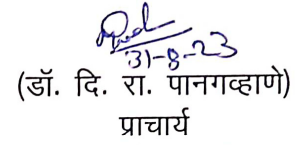 31-8-23
(डॉ. दि. रा. पानगव्हाणे)
प्राचार्य